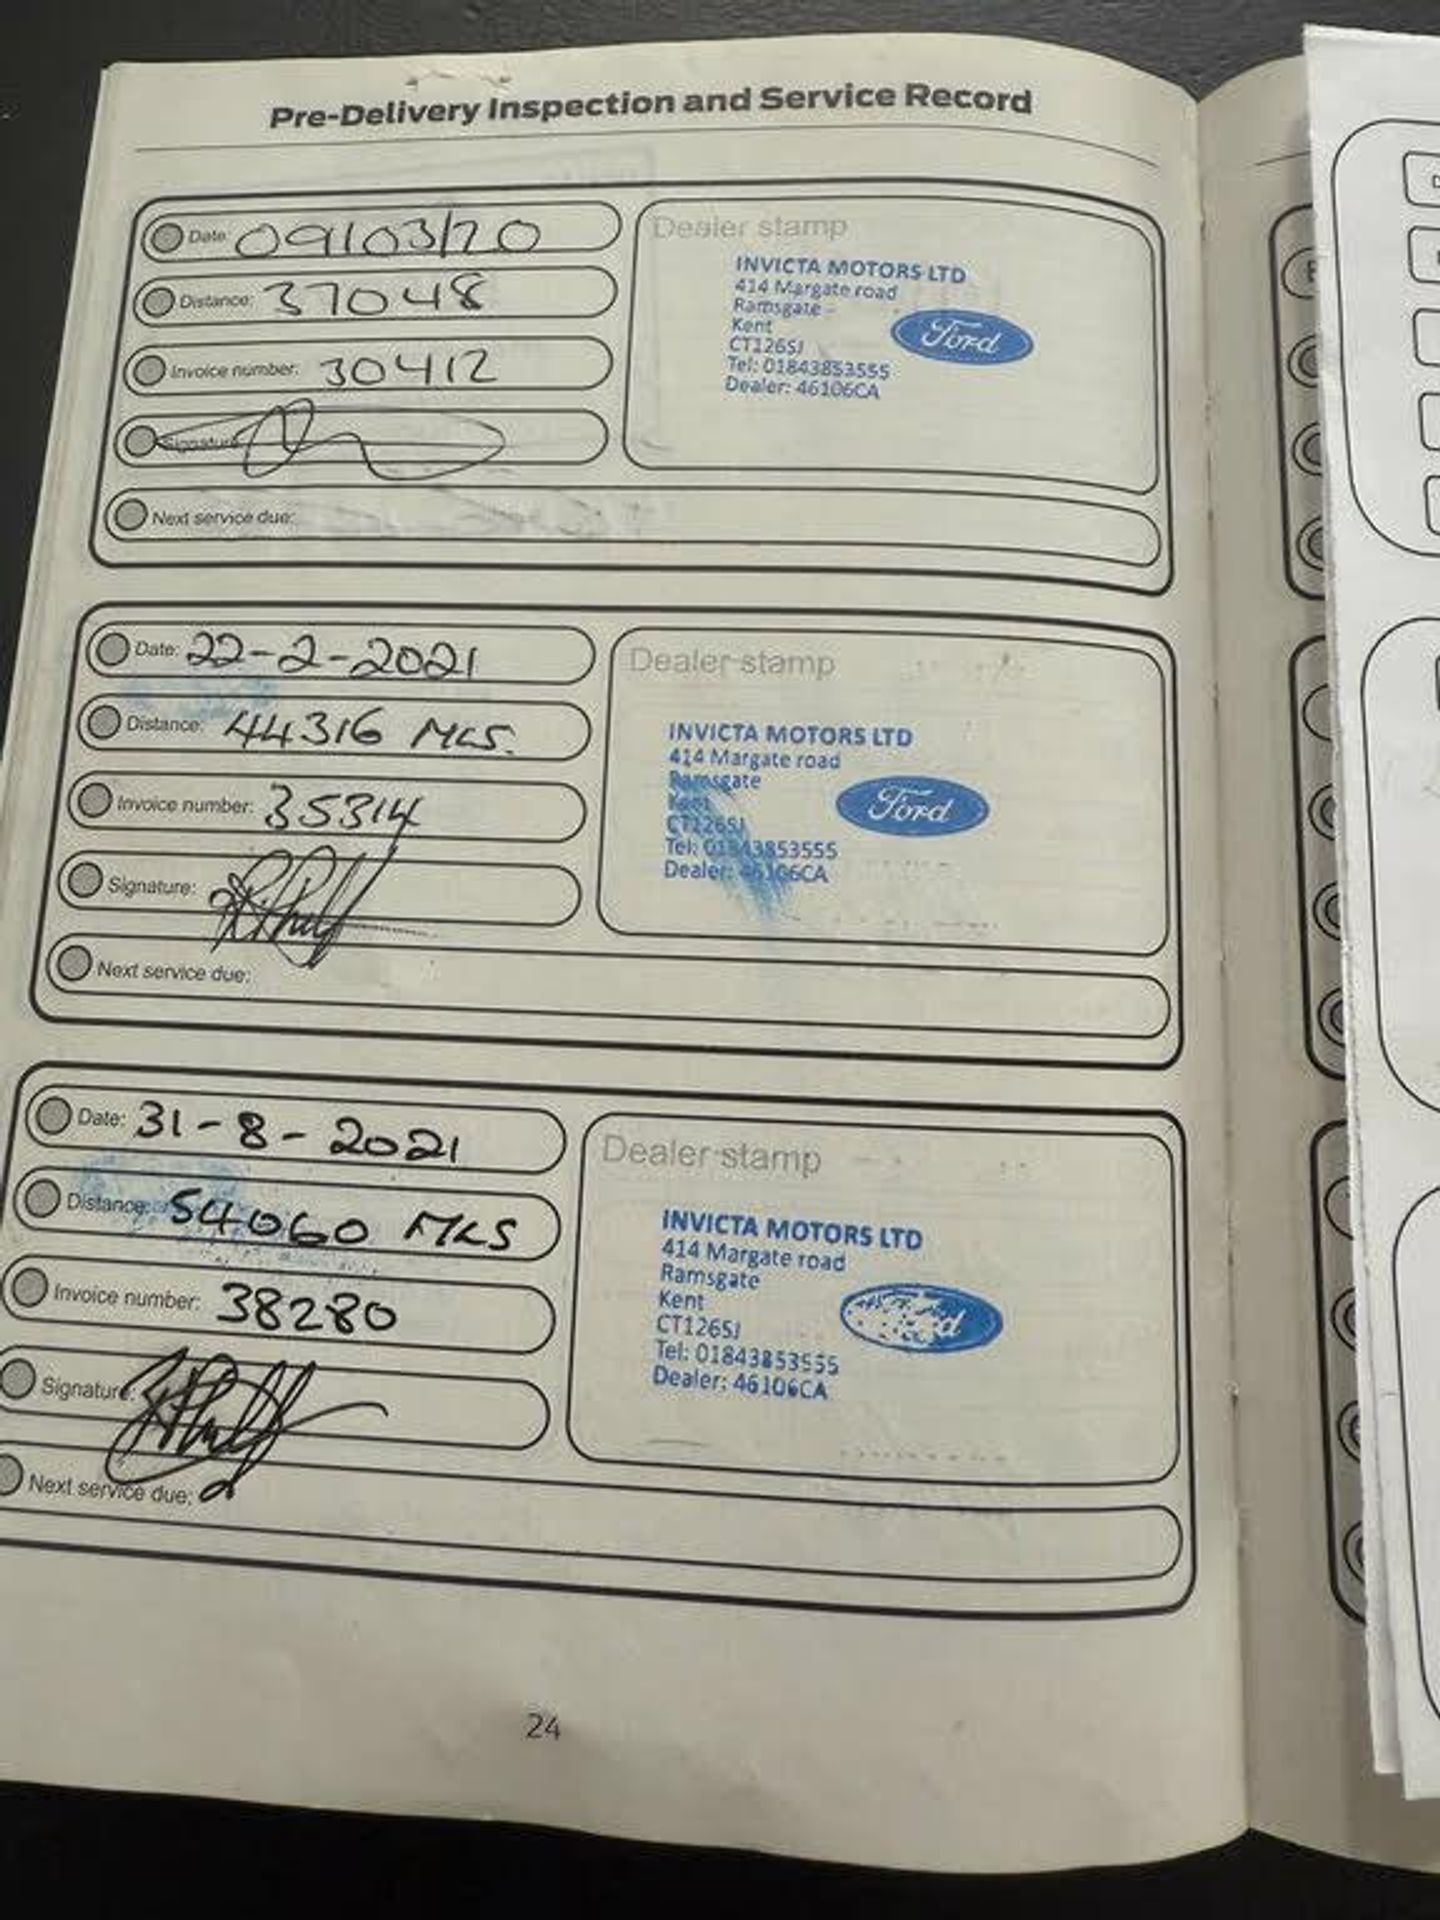 Pre-Delivery Inspection and Service Record
Date: 09/03/20
Distance: 37048
Invoice number: 30412
Signature:
Next service due:
Dealer stamp
INVICTA MOTORS LTD
414 Margate road
Ramsgate
Kent
CT126SJ
Tel: 01843853555
Dealer: 46106CA
Ford
Date: 22-2-2021
Distance: 44316 MLS.
Invoice number: 35314
Signature:
Next service due:
Dealer stamp
INVICTA MOTORS LTD
414 Margate road
Ramsgate
Kent
CT126SJ
Tel: 01843853555
Dealer: 46106CA
Ford
Date: 31-8-2021
Distance: 54060 MLS
Invoice number: 38280
Signature:
Next service due:
Dealer stamp
INVICTA MOTORS LTD
414 Margate road
Ramsgate
Kent
CT126SJ
Tel: 01843853555
Dealer: 46106CA
Ford
24